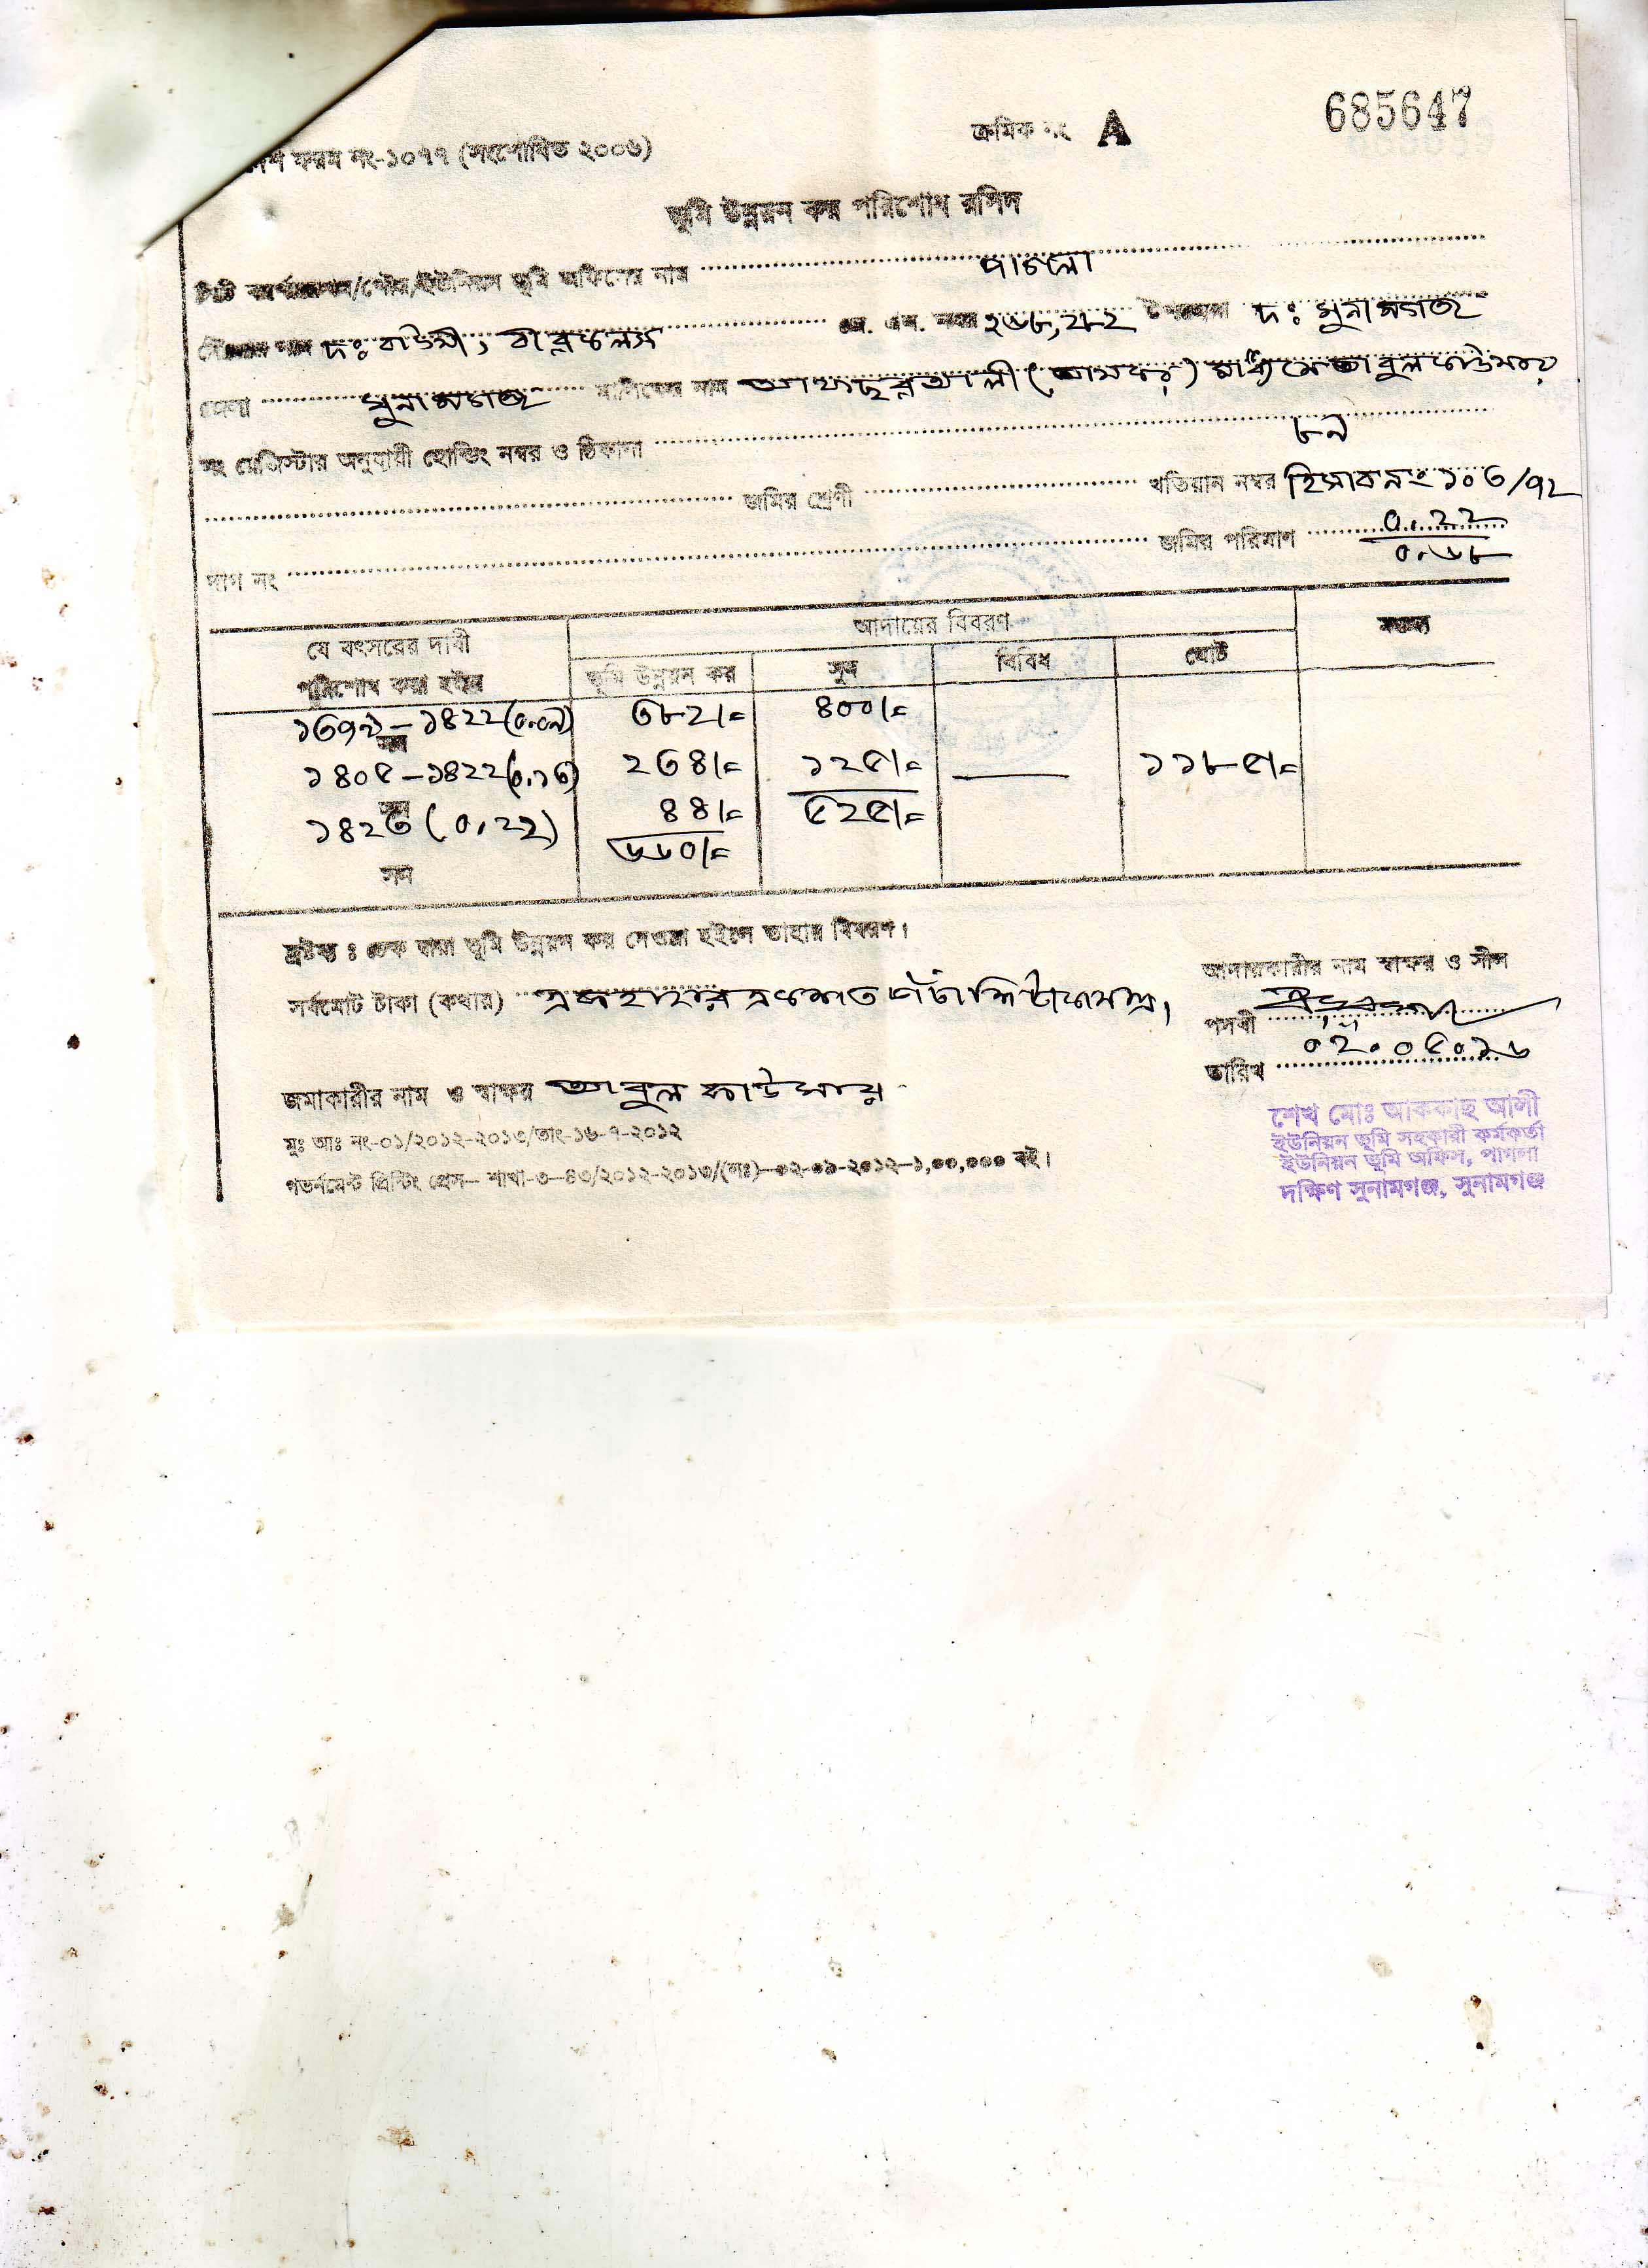 ক্রমিক নং A 685647
ফরম নং-১০৭৭ (সংশোধিত ২০০৬)
ভূমি উন্নয়ন কর পরিশোধ রসিদ
সিটি কর্পোরেশন/পৌর/ইউনিয়ন ভূমি অফিসের নাম পাগলা
মৌজার নাম দঃ বাউসী, বীরগাঁও জে. এল. নম্বর ২৬৮, উপজেলা দঃ সুনামগঞ্জ
জেলা সুনামগঞ্জ মালিকের নাম আলী মাধ্যমে আবুল
নং রেজিস্টার অনুযায়ী হোল্ডিং নম্বর ও ঠিকানা
জমির শ্রেণী খতিয়ান নম্বর হিসাব নং ১০৩/৭২
দাগ নং জমির পরিমাণ ০.২২
০.৬৮
যে বৎসরের দাবী পরিশোধ করা হইল আদায়ের বিবরণ মন্তব্য
ভূমি উন্নয়ন কর সুদ বিবিধ মোট
১৩৭৯ – ১৪২২ (০.০৯) ৩৮২/= ৪০০/=
সন
১৪০৫ – ১৪২২ (০.১৩) ২৩৪/= ১২৫/= — ১১৮৫/=
সন
১৪২৩ (০.২২) ৪৪/= ৫২৫/=
৬৬০/=
সন
দ্রষ্টব্য : চেক দ্বারা ভূমি উন্নয়ন কর দেওয়া হইলে তাহার বিবরণ।
আদায়কারীর নাম স্বাক্ষর ও সীল
সর্বমোট টাকা (কথায়) এক হাজার একশত পঁচাশি টাকা মাত্র।
পদবী
তারিখ ০২.০৫.১৬
জমাকারীর নাম ও স্বাক্ষর আবুল কাউসার
মুঃ আঃ নং-০১/২০১২-২০১৩/তাং-১৬-৭-২০১২
গভর্নমেন্ট প্রিন্টিং প্রেস— শাখা-৩—৪৩/২০১২-২০১৩/(লঃ)—০২-০৯-২০১২—১,০০,০০০ বই।
শেখ মোঃ আককাছ আলী
ইউনিয়ন ভূমি সহকারী কর্মকর্তা
ইউনিয়ন ভূমি অফিস, পাগলা
দক্ষিণ সুনামগঞ্জ, সুনামগঞ্জ